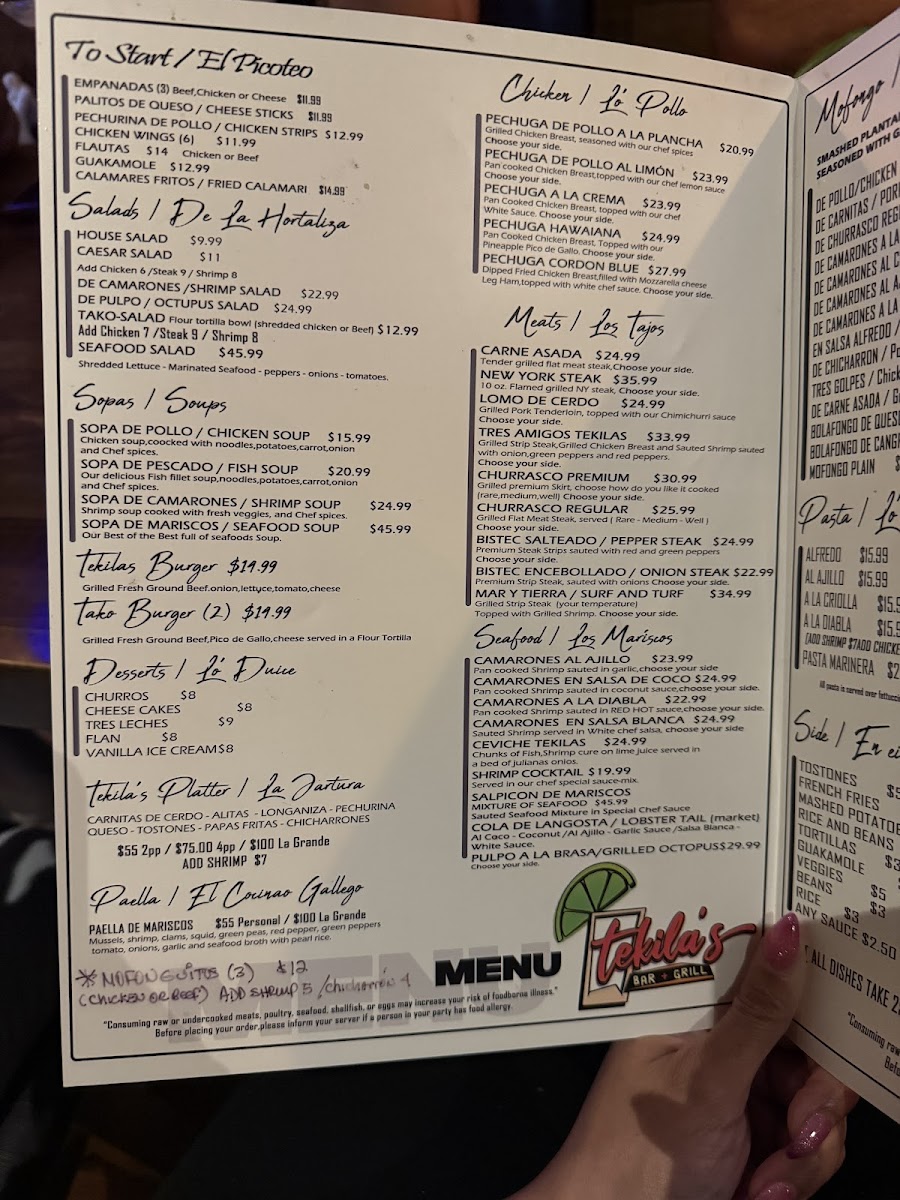 To Start / El Picoteo
EMPANADAS (3) Beef,Chicken or Cheese $11.99
PALITOS DE QUESO / CHEESE STICKS $11.99
PECHURINA DE POLLO / CHICKEN STRIPS $12.99
CHICKEN WINGS (6) $11.99
FLAUTAS $14 Chicken or Beef
GUAKAMOLE $12.99
CALAMARES FRITOS / FRIED CALAMARI $14.99
Salads / De La Hortaliza
HOUSE SALAD $9.99
CAESAR SALAD $11
Add Chicken 6 /Steak 9 / Shrimp 8
DE CAMARONES /SHRIMP SALAD $22.99
DE PULPO / OCTUPUS SALAD $24.99
TAKO-SALAD Flour tortilla bowl (shredded chicken or Beef) $12.99
Add Chicken 7 /Steak 9 / Shrimp 8
SEAFOOD SALAD $45.99
Shredded Lettuce - Marinated Seafood - peppers - onions - tomatoes.
Sopas / Soups
SOPA DE POLLO / CHICKEN SOUP $15.99
Chicken soup,coocked with noodles,potatoes,carrot,onion
and Chef spices.
SOPA DE PESCADO / FISH SOUP $20.99
Our delicious Fish fillet soup,noodles,potatoes,carrot,onion
and Chef spices.
SOPA DE CAMARONES / SHRIMP SOUP $24.99
Shrimp soup cooked with fresh veggies, and Chef spices.
SOPA DE MARISCOS / SEAFOOD SOUP $45.99
Our Best of the Best full of seafoods Soup.
Tekilas Burger $19.99
Grilled Fresh Ground Beef.onion,lettuce,tomato,cheese
Tako Burger (2) $19.99
Grilled Fresh Ground Beef,Pico de Gallo,cheese served in a Flour Tortilla
Desserts / Lo´ Duice
CHURROS $8
CHEESE CAKES $8
TRES LECHES $9
FLAN $8
VANILLA ICE CREAM$8
Tekila's Platter / La Jartura
CARNITAS DE CERDO - ALITAS - LONGANIZA - PECHURINA
QUESO - TOSTONES - PAPAS FRITAS - CHICHARRONES
$55 2pp / $75.00 4pp / $100 La Grande
ADD SHRIMP $7
Paella / El Cocinao Gallego
PAELLA DE MARISCOS $55 Personal / $100 La Grande
Mussels, shrimp, clams, squid, green peas, red pepper, green peppers
tomato, onions, garlic and seafood broth with pearl rice.
* MOFONGUITOS (3) $12
(CHICKEN OR BEEF) ADD SHRIMP 5 /chicharrón 4
"Consuming raw or undercooked meats, poultry, seafood, shellfish, or eggs may increase your risk of foodborne illness."
Before placing your order,please inform your server if a person in your party has food allergy.
Chicken / Lo´ Pollo
PECHUGA DE POLLO A LA PLANCHA $20.99
Grilled Chicken Breast, seasoned with our chef spices
Choose your side.
PECHUGA DE POLLO AL LIMÓN $23.99
Pan cooked Chicken Breast,topped with our chef lemon sauce
Choose your side.
PECHUGA A LA CREMA $23.99
Pan Cooked Chicken Breast, topped with our chef
White Sauce. Choose your side.
PECHUGA HAWAIANA $24.99
Pan Cooked Chicken Breast, Topped with our
Pineapple Pico de Gallo. Choose your side.
PECHUGA CORDON BLUE $27.99
Dipped Fried Chicken Breast,filled with Mozzarella cheese
Leg Ham,topped with white chef sauce. Choose your side.
Meats / Los Tajos
CARNE ASADA $24.99
Tender grilled flat meat steak,Choose your side.
NEW YORK STEAK $35.99
10 oz. Flamed grilled NY steak, Choose your side.
LOMO DE CERDO $24.99
Grilled Pork Tenderloin, topped with our Chimichurri sauce
Choose your side.
TRES AMIGOS TEKILAS $33.99
Grilled Strip Steak,Grilled Chicken Breast and Sauted Shrimp sauted
with onion,green peppers and red peppers.
Choose your side.
CHURRASCO PREMIUM $30.99
Grilled premium Skirt, choose how do you like it cooked
(rare,medium,well) Choose your side.
CHURRASCO REGULAR $25.99
Grilled Flat Meat Steak, served ( Rare - Medium - Well )
Choose your side.
BISTEC SALTEADO / PEPPER STEAK $24.99
Premium Steak Strips sauted with red and green peppers
Choose your side.
BISTEC ENCEBOLLADO / ONION STEAK $22.99
Premium Strip Steak, sauted with onions Choose your side.
MAR Y TIERRA / SURF AND TURF $34.99
Grilled Strip Steak (your temperature)
Topped with Grilled Shrimp. Choose your side.
Seafood / Los Mariscos
CAMARONES AL AJILLO $23.99
Pan cooked Shrimp sauted in garlic,choose your side
CAMARONES EN SALSA DE COCO $24.99
Pan cooked Shrimp sauted in coconut sauce,choose your side.
CAMARONES A LA DIABLA $22.99
Pan cooked Shrimp sauted in RED HOT sauce,choose your side.
CAMARONES EN SALSA BLANCA $24.99
Sauted Shrimp served in White chef salsa, choose your side
CEVICHE TEKILAS $24.99
Chunks of Fish,Shrimp cure on lime juice served in
a bed of julianas onios.
SHRIMP COCKTAIL $19.99
Served in our chef special sauce-mix.
SALPICON DE MARISCOS
MIXTURE OF SEAFOOD $45.99
Sauted Seafood Mixture in Special Chef Sauce
COLA DE LANGOSTA / LOBSTER TAIL (market)
Al Coco - Coconut /Al Ajillo - Garlic Sauce /Salsa Blanca -
White Sauce.
PULPO A LA BRASA/GRILLED OCTOPUS$29.99
Choose your side.
MENU
MENU
tekila's
BAR + GRILL
Mofongo /
SMASHED PLANTA
SEASONED WITH G
DE POLLO/CHICKEN
DE CARNITAS / POR
DE CHURRASCO REG
DE CAMARONES A LA
DE CAMARONES AL C
DE CAMARONES AL A
DE CAMARONES A LA
EN SALSA ALFREDO /
DE CHICHARRON / Po
TRES GOLPES / Chick
DE CARNE ASADA / G
BOLAFONGO DE QUES
BOLAFONGO DE CANG
MOFONGO PLAIN $
Pasta / Lo´
ALFREDO $15.99
AL AJILLO $15.99
A LA CRIOLLA $15.9
A LA DIABLA $15.
(ADD SHRIMP $7ADD CHICKE
PASTA MARINERA $2
All pasta is served over fettucci
Side / En ci
TOSTONES $5
FRENCH FRIES
MASHED POTATOE
RICE AND BEANS
TORTILLAS $3
GUAKAMOLE
VEGGIES $5
BEANS $3
RICE $3
ANY SAUCE $2.50
ALL DISHES TAKE 2
"Consuming raw
Befo